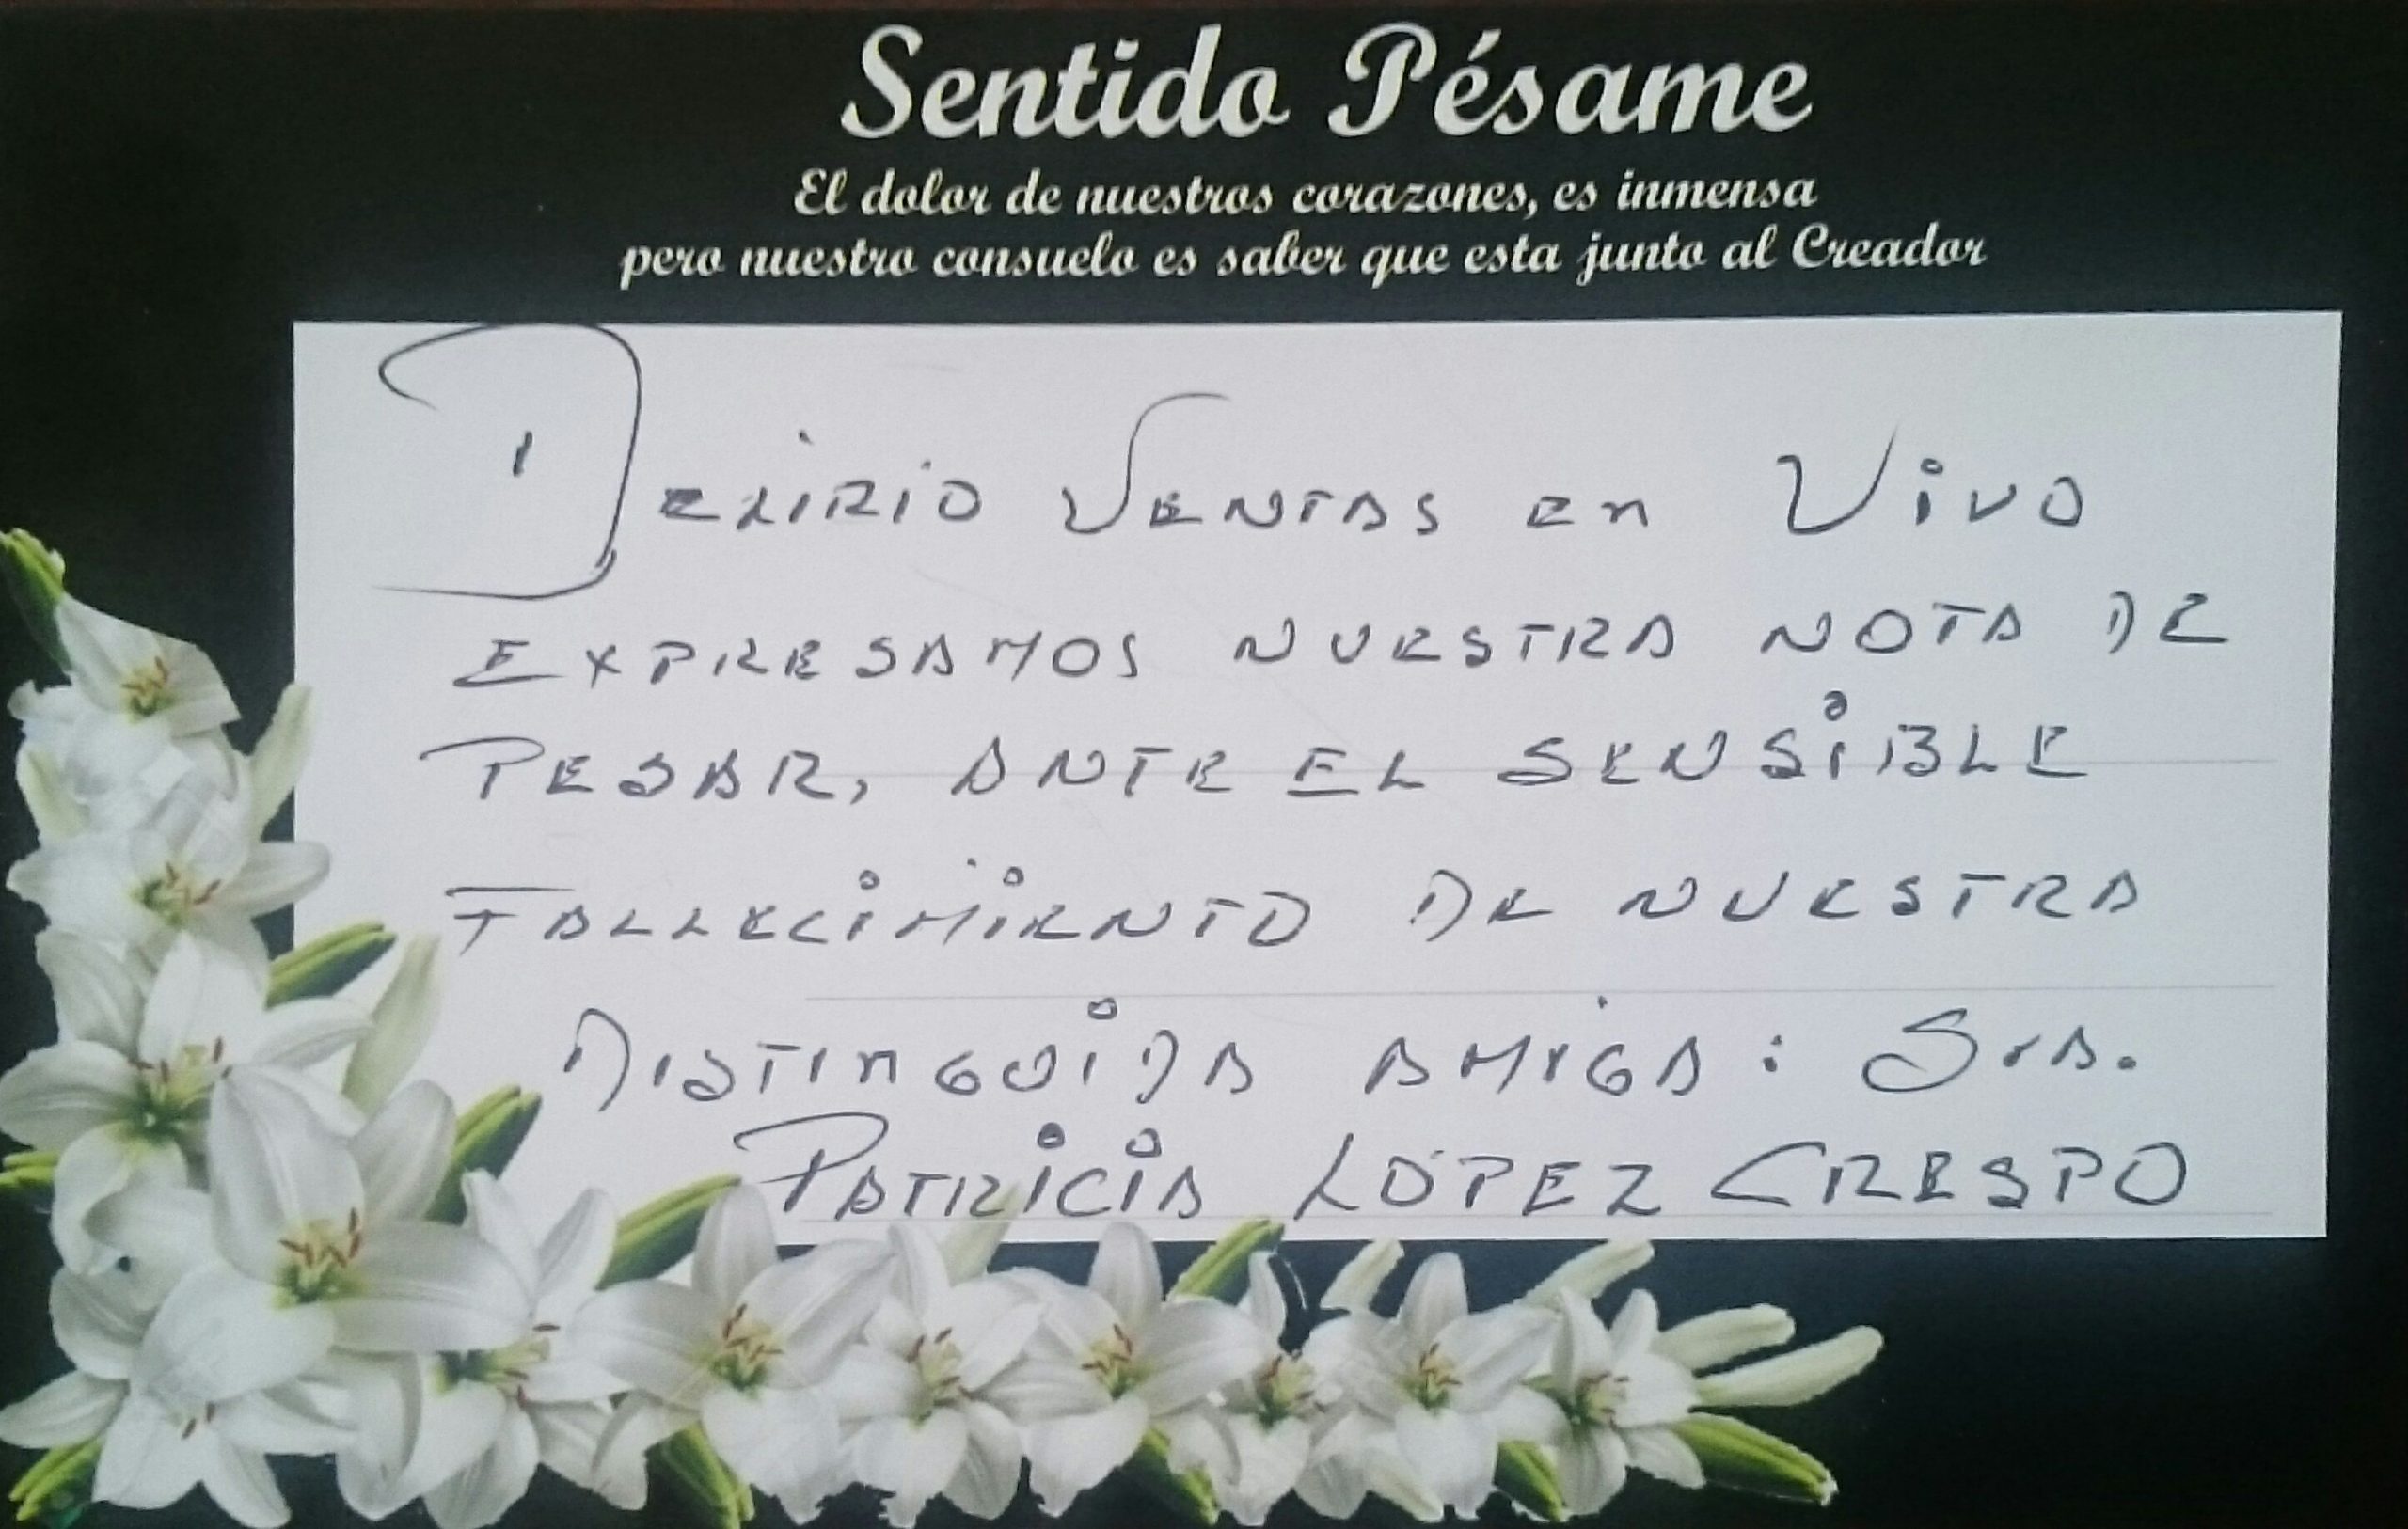 Sentido Pésame
El dolor de nuestros corazones, es inmensa
pero nuestro consuelo es saber que esta junto al Creador
DELIRIO VENTAS en VIVO
EXPRESAMOS NUESTRA NOTA DE
PESAR, ANTE EL SENSIBLE
FALLECIMIENTO DE NUESTRA
DISTINGUIDA AMIGA: Sra.
PATRICIA LÓPEZ CRESPO